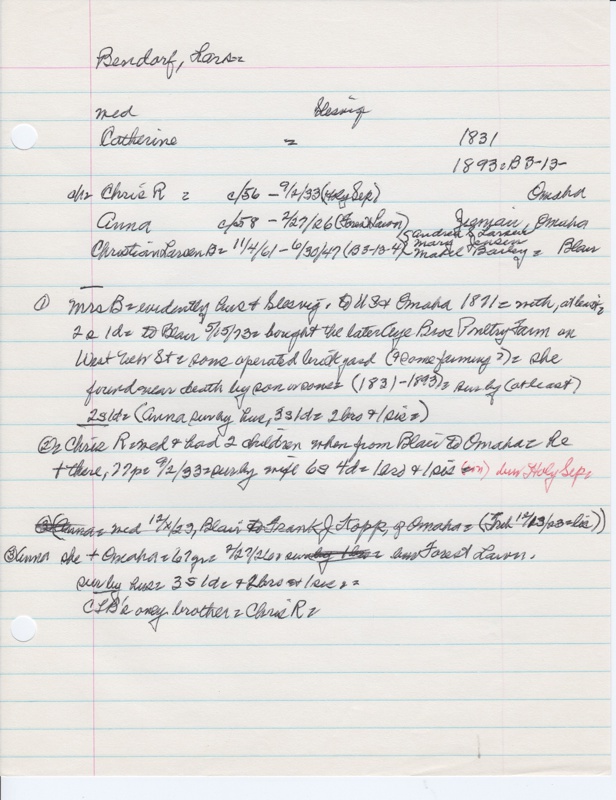 Bendorf, Lars=
med Slesvig
Catherine = 1831
1893=B3-13-
c/12 Chris R = c/56 - 9/2/33 (Holy Sep) Omaha
Anna c/58 - 2/27/26 (Forest Lawn) Omaha
Christian Larsen B= 11/4/61 - 6/30/47 (B3-13-4) Mabel Bailey = Blair
Andrea S. Larsen
Mary Jensen
① Mrs B= evidently Slesvig. to US + Omaha 1871= with, at least
2 s 1d= to Blair 5/15/73= bought the later Aye Bros Poultry Farm on
West St= sons operated brickyard (+ some farming?)= she
found near death by son or sons= (1831-1893)= sur by (at least)
2s1d= (Anna sur by hus, 3s1d= 2 bros + 1 sis=)
②= Chris R= med + had 2 children when from Blair to Omaha= he
+ there, 77 9/2/33= sur by wife 6s 4d= 1 bro + 1 sis bur Holy Sep=
Anna= med 12/ /23, Blair to Frank J Kopp, of Omaha=
③ Anna she + Omaha= 67 2/27/26= bur Forest Lawn.
sur by hus= 3s1d= + 2 bros + 1 sis==
CLB's only brother= Chris R=